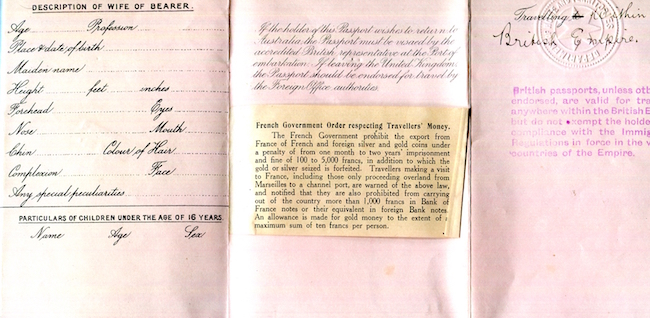 DESCRIPTION OF WIFE OF BEARER.
Age Profession
Place & date of birth
Maiden name
Height feet inches
Forehead Eyes
Nose Mouth
Chin Colour of Hair
Complexion Face
Any special peculiarities
PARTICULARS OF CHILDREN UNDER THE AGE OF 16 YEARS.
Name Age Sex
If the holder of this Passport wishes to return to
Australia, the Passport must be visaed by the
accredited British representative at the Port of
embarkation. If leaving the United Kingdom,
the Passport should be endorsed for travel by
the Foreign Office authorities.
French Government Order respecting Travellers' Money.
The French Government prohibit the export from
France of French and foreign silver and gold coins under
a penalty of from one month to two years' imprisonment
and fine of 100 to 5,000 francs, in addition to which the
gold or silver seized is forfeited. Travellers making a visit
to France, including those only proceeding overland from
Marseilles to a channel port, are warned of the above law,
and notified that they are also prohibited from carrying
out of the country more than 1,000 francs in Bank of
France notes or their equivalent in foreign Bank notes
An allowance is made for gold money to the extent of a
maximum sum of ten francs per person.
Travelling
British Empire.
British passports, unless oth
endorsed, are valid for tra
anywhere within the British E
but do not exempt the holde
compliance with the Immig
Regulations in force in the v
countries of the Empire.